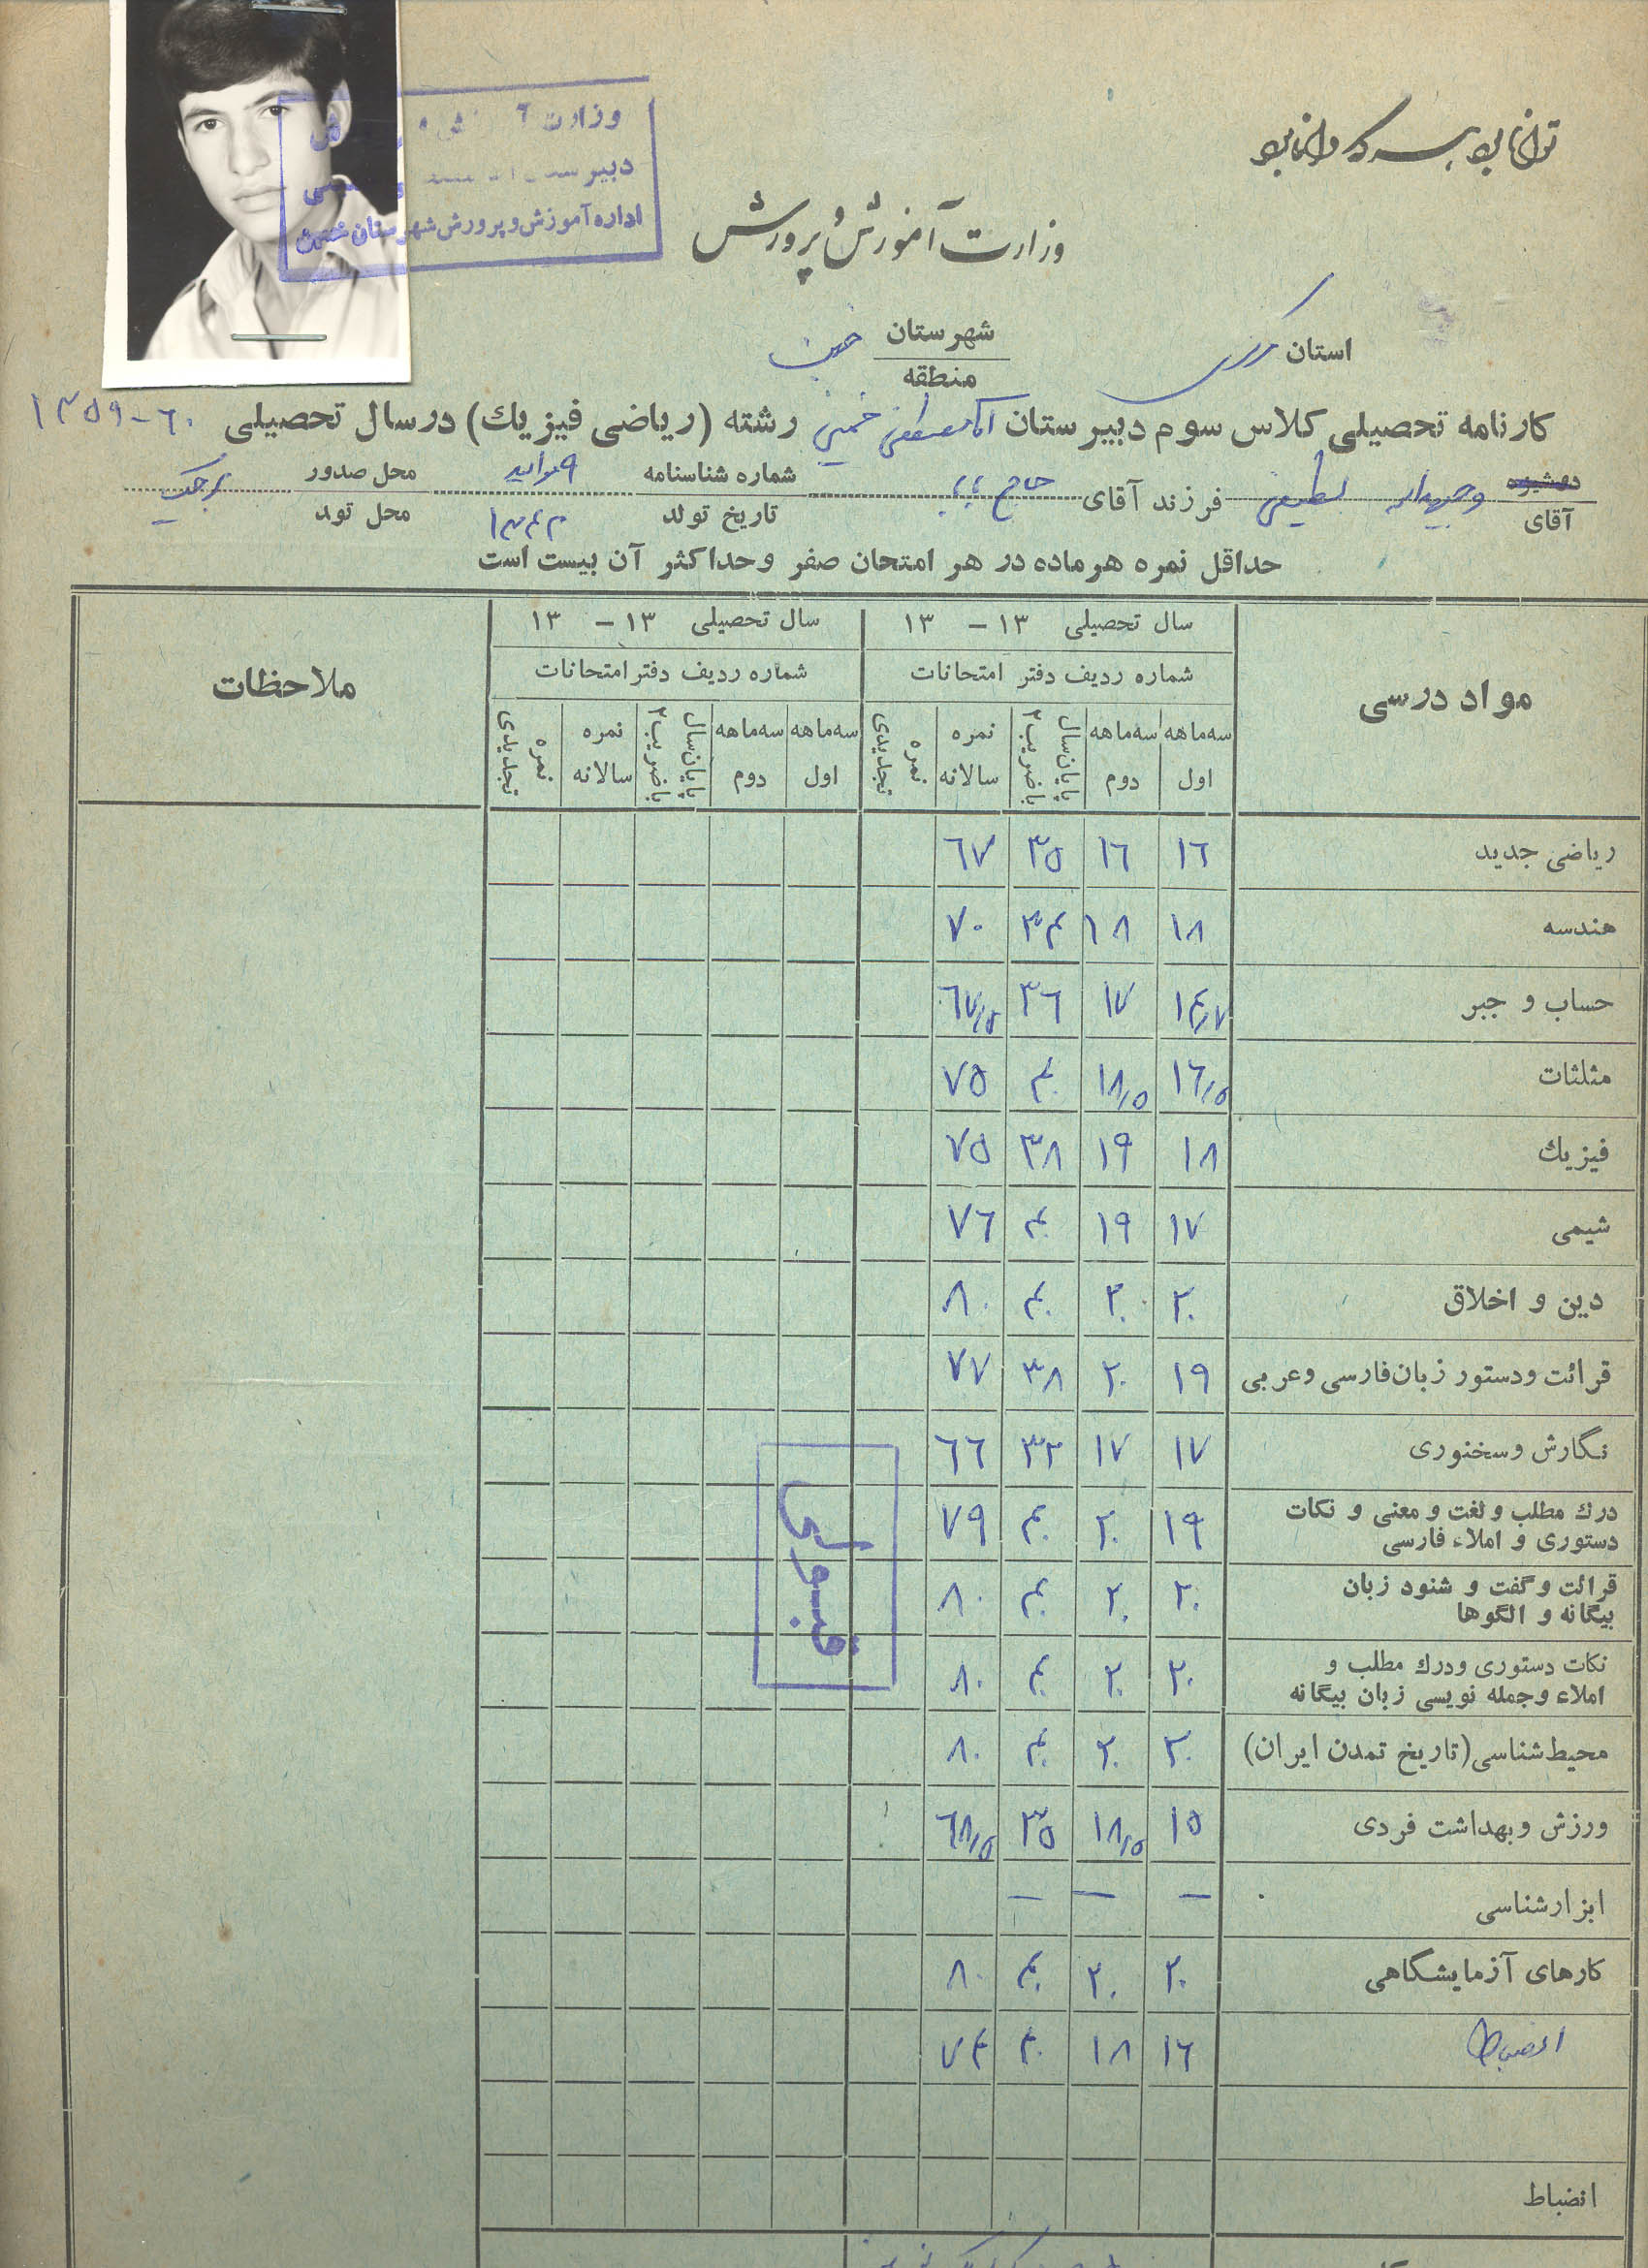 توانا بود هر که دانا بود
وزارت آموزش و پرورش
وزارت آ
دبیر
اداره آموزش و پرورش شهرستان خمین
استان مرکزی
شهرستان خمین
منطقه
کارنامه تحصیلی کلاس سوم دبیرستان مصطفی خمینی رشته (ریاضی فیزیك) در سال تحصیلی ۶۰-۱۳۵۹
دوشیزه
آقای لطیفی فرزند آقای حاج بابا شماره شناسنامه محل صدور
تاریخ تولد ۱۳۴۳ محل تولد
حداقل نمره هر ماده در هر امتحان صفر و حداکثر آن بیست است
مواد درسی سال تحصیلی ۱۳ – ۱۳ سال تحصیلی ۱۳ – ۱۳ ملاحظات
شماره ردیف دفتر امتحانات شماره ردیف دفتر امتحانات
سه‌ماهه اول سه‌ماهه دوم پایان‌سال باضریب۲ نمره سالانه نمره تجدیدی سه‌ماهه اول سه‌ماهه دوم پایان‌سال باضریب۲ نمره سالانه نمره تجدیدی
ریاضی جدید ۱۶ ۱۶ ۳۵ ۶۷
هندسه ۱۸ ۱۸ ۳۴ ۷۰
حساب و جبر ۱۷ ۳۶ ۶۷/۵
مثلثات ۱۶/۵ ۱۸/۵ ۴۰ ۷۵
فیزیك ۱۸ ۱۹ ۳۸ ۷۵
شیمی ۱۷ ۱۹ ۴۰ ۷۶
دین و اخلاق ۲۰ ۲۰ ۴۰ ۸۰
قرائت و دستور زبان‌فارسی و عربی ۱۹ ۲۰ ۳۸ ۷۷
نگارش و سخنوری ۱۷ ۱۷ ۳۲ ۶۶
درك مطلب و لغت و معنی و نکات
دستوری و املاء فارسی ۱۹ ۲۰ ۴۰ ۷۹
قرائت و گفت و شنود زبان
بیگانه و الگوها ۲۰ ۲۰ ۴۰ ۸۰
نکات دستوری و درك مطلب و
املاء و جمله نویسی زبان بیگانه ۲۰ ۲۰ ۴۰ ۸۰
محیط شناسی (تاریخ تمدن ایران) ۲۰ ۲۰ ۴۰ ۸۰
ورزش و بهداشت فردی ۱۵ ۱۸/۵ ۳۵ ۶۸/۵
ابزارشناسی – – –
کارهای آزمایشگاهی ۲۰ ۲۰ ۴۰ ۸۰
انضباط ۱۶ ۱۸ ۴۰ ۷۴
انضباط
قبولی